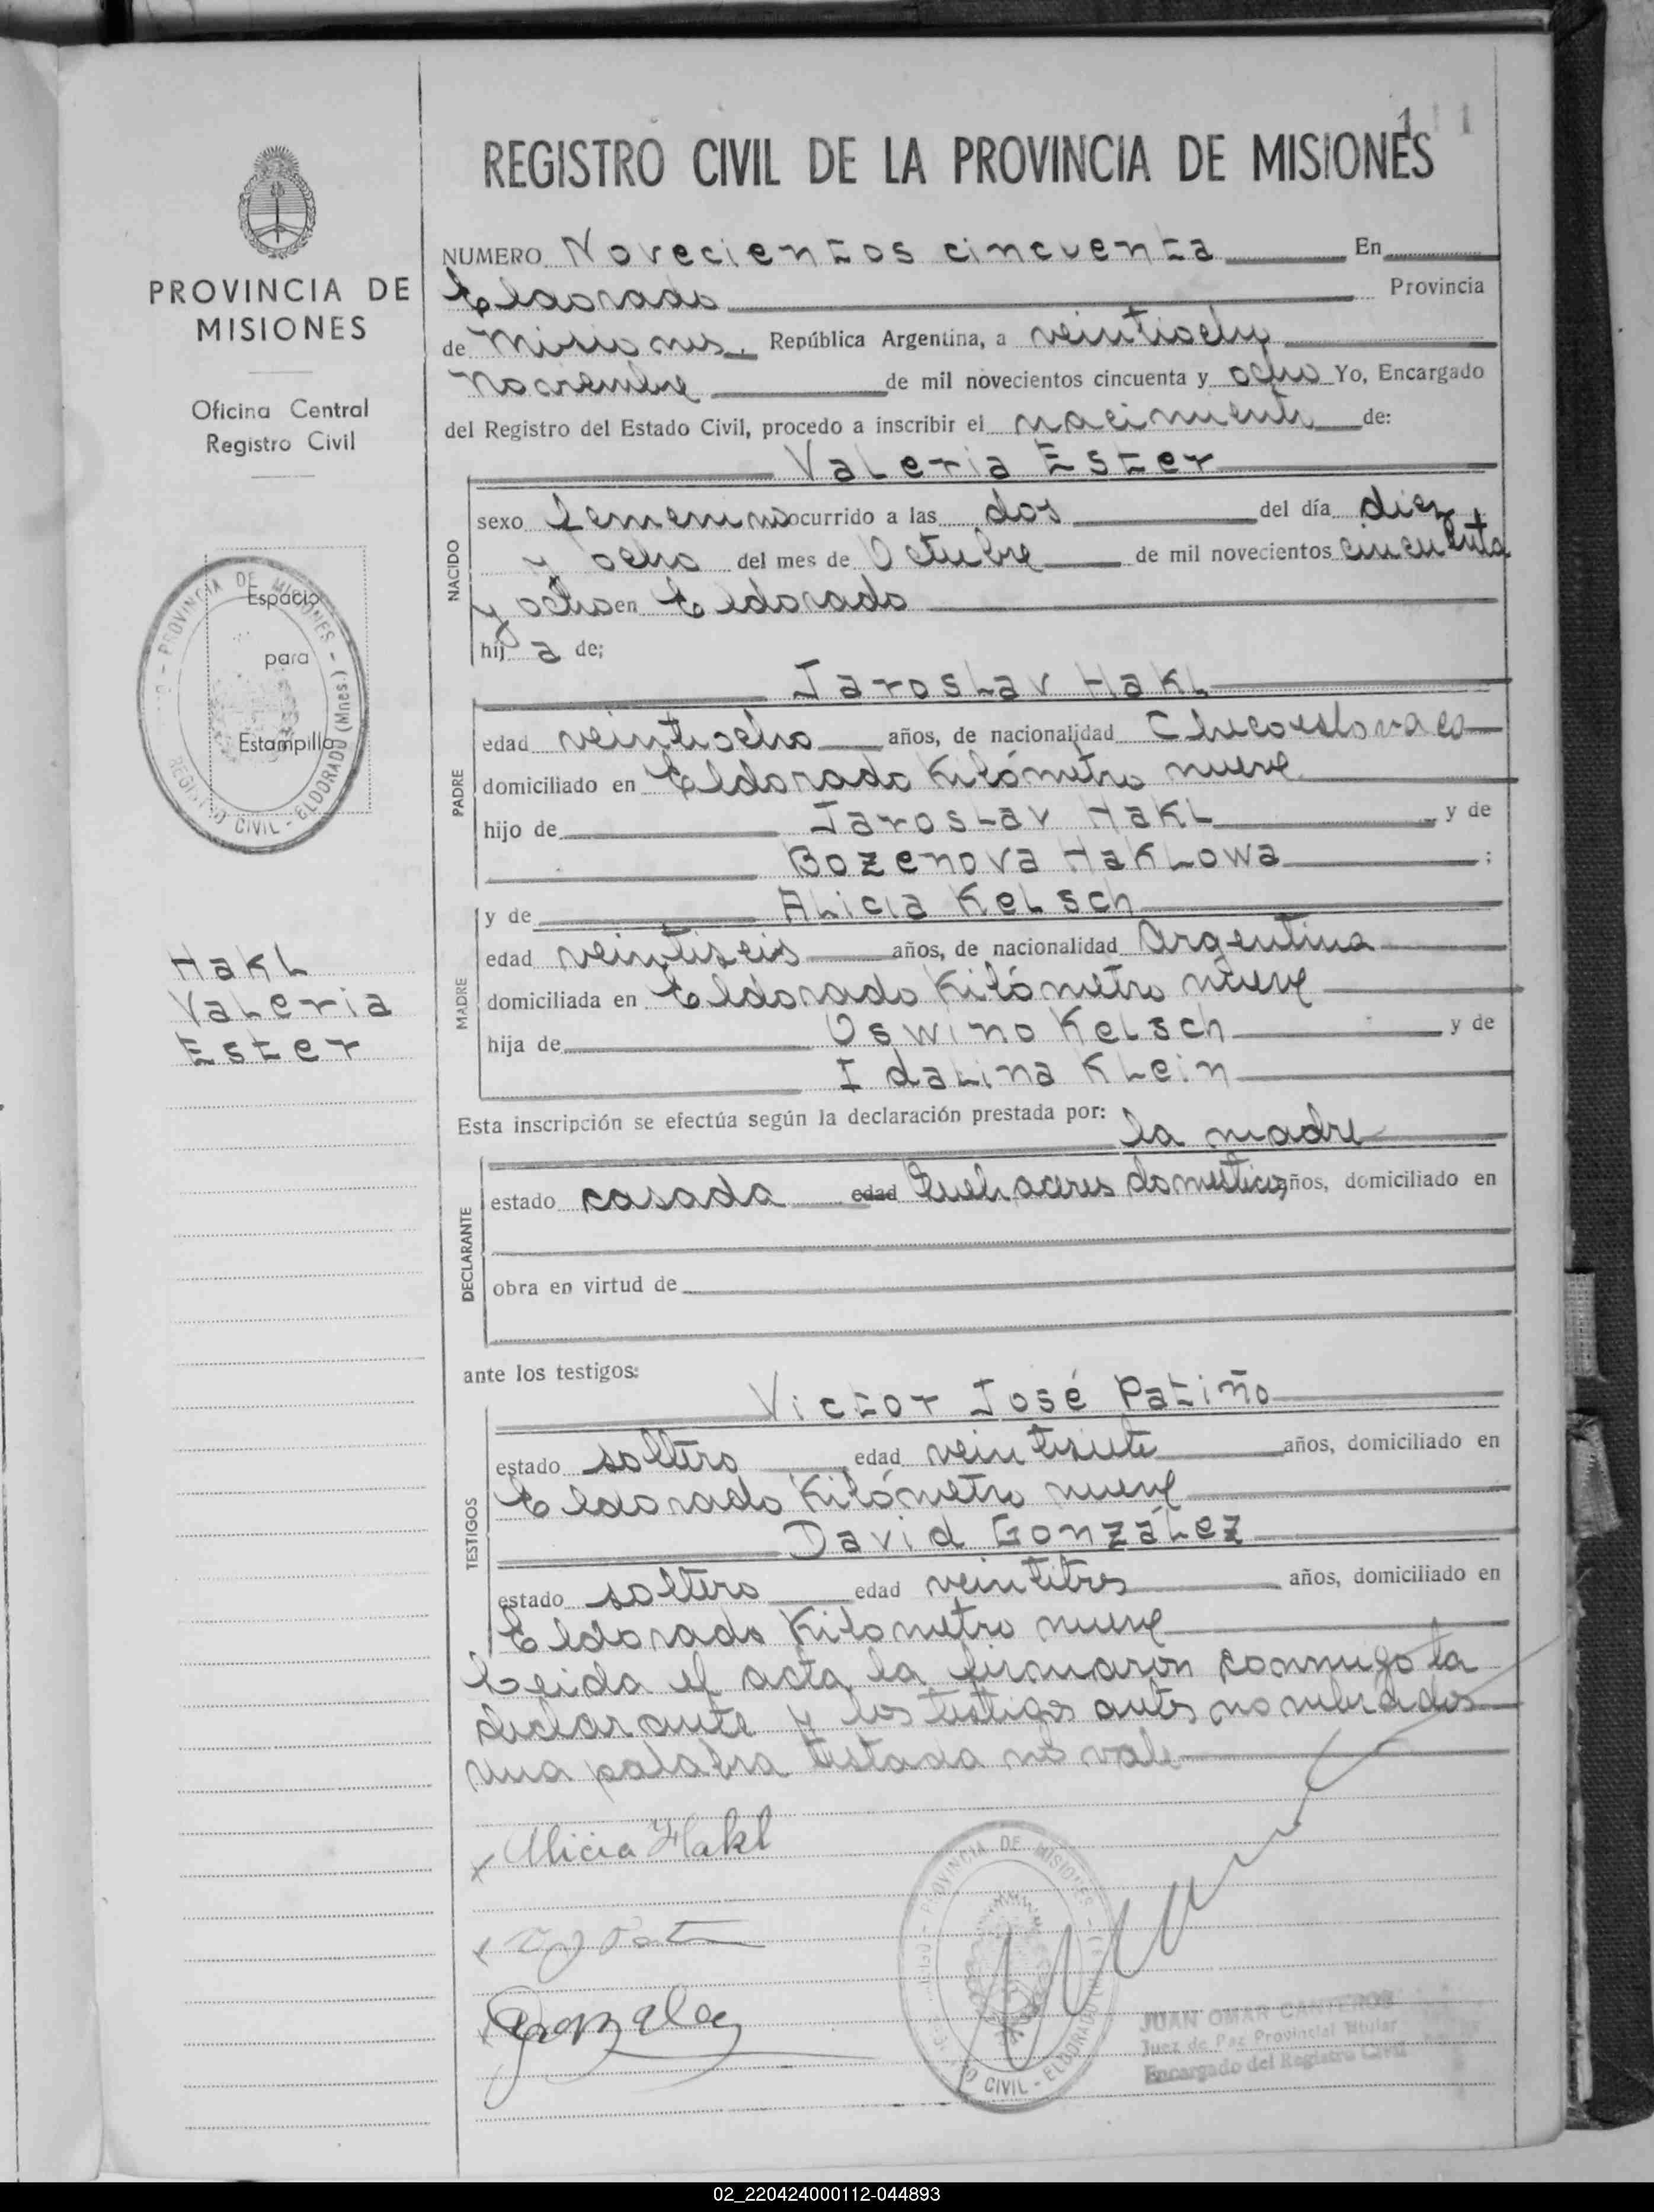 111
REGISTRO CIVIL DE LA PROVINCIA DE MISIONES
PROVINCIA DE
MISIONES
Oficina Central
Registro Civil
Espacio
para
Estampilla
PROVINCIA DE MISIONES
REGISTRO CIVIL - ELDORADO (Mnes.)
Hakl
Valeria
Ester
NUMERO Novecientos cincuenta En
Eldorado Provincia
de Misiones, República Argentina, a veintiocho
Noviembre de mil novecientos cincuenta y ocho Yo, Encargado
del Registro del Estado Civil, procedo a inscribir el nacimiento de:
Valeria Ester
NACIDO
sexo femenino ocurrido a las dos del día diez
y ocho del mes de Octubre de mil novecientos cincuenta
y ocho en Eldorado
hij a de;
Jaroslav Hakl
PADRE
edad veintiocho años, de nacionalidad Checoeslovaco
domiciliado en Eldorado Kilómetro nueve
hijo de Jaroslav Hakl y de
Bozenova Haklowa ;
y de Alicia Kelsch
MADRE
edad veintiseis años, de nacionalidad Argentina
domiciliada en Eldorado Kilómetro nueve
hija de Oswino Kelsch y de
Idalina Klein
Esta inscripción se efectúa según la declaración prestada por: la madre
DECLARANTE
estado casada edad Quehaceres domesticos años, domiciliado en
obra en virtud de
ante los testigos:
Victor José Patiño
TESTIGOS
estado soltero edad veintisiete años, domiciliado en
Eldorado Kilómetro nueve
David González
estado soltero edad veintitres años, domiciliado en
Eldorado Kilometro nueve
Leida el acta la firmaron conmigo la
declarante y los testigos antes nombrados
una palabra testada no vale
x Alicia Hakl
x
x Gonzalez
PROVINCIA DE MISIONES
CIVIL - ELDORADO
JUAN OMAR CANTEROS
Juez de Paz Provincial Titular
Encargado del Registro Civil
02_220424000112-044893